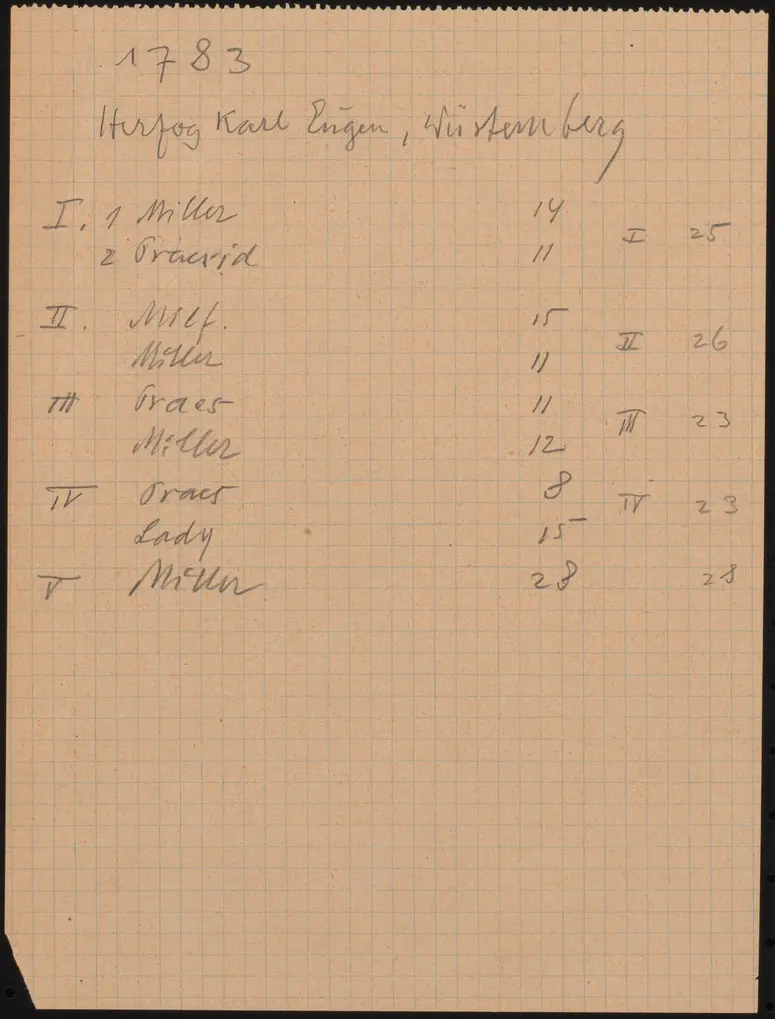 1783
Herzog Karl Eugen, Würtemberg
I. 1 Miller 14
2 Praesid 11
I 25
II. Milf. 15
Miller 11
II 26
III Praes 11
Miller 12
III 23
IV Praes 8
Lady 15
IV 23
V Miller 28 28